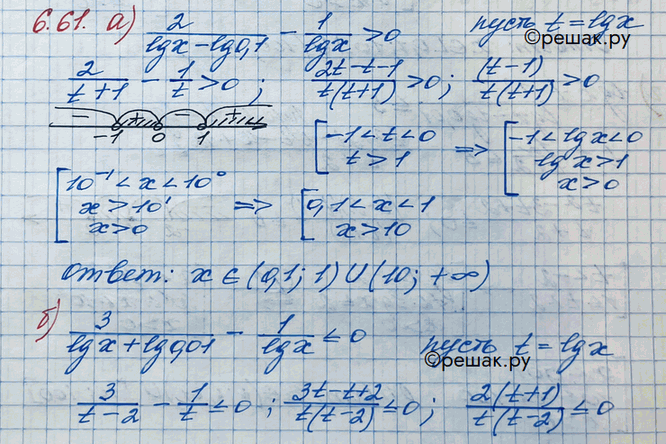 6.61. а) 2/(lgx-lg0,1) - 1/lgx >0 пусть t=lgx
©решак.ру
2/(t+1) - 1/t >0; (2t-t-1)/(t(t+1)) >0; (t-1)/(t(t+1)) >0
- + - +
-1 0 1
[-1<t<0 => [-1<lgx<0
t>1 lgx>1
x>0
[10⁻¹<x<10⁰ => [0,1<x<1
x>10¹ x>10
x>0
ответ: x∈(0,1; 1)∪(10; +∞)
б) 3/(lgx+lg0,01) - 1/lgx ≤0 пусть t=lgx
©решак.ру
3/(t-2) - 1/t ≤0; (3t-t+2)/(t(t-2)) ≤0; 2(t+1)/(t(t-2)) ≤0